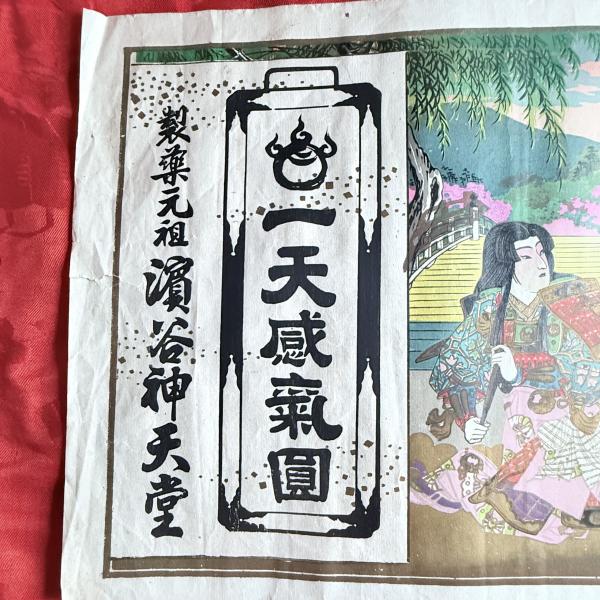 一天感氣圓
製藥元祖 濱谷神天堂